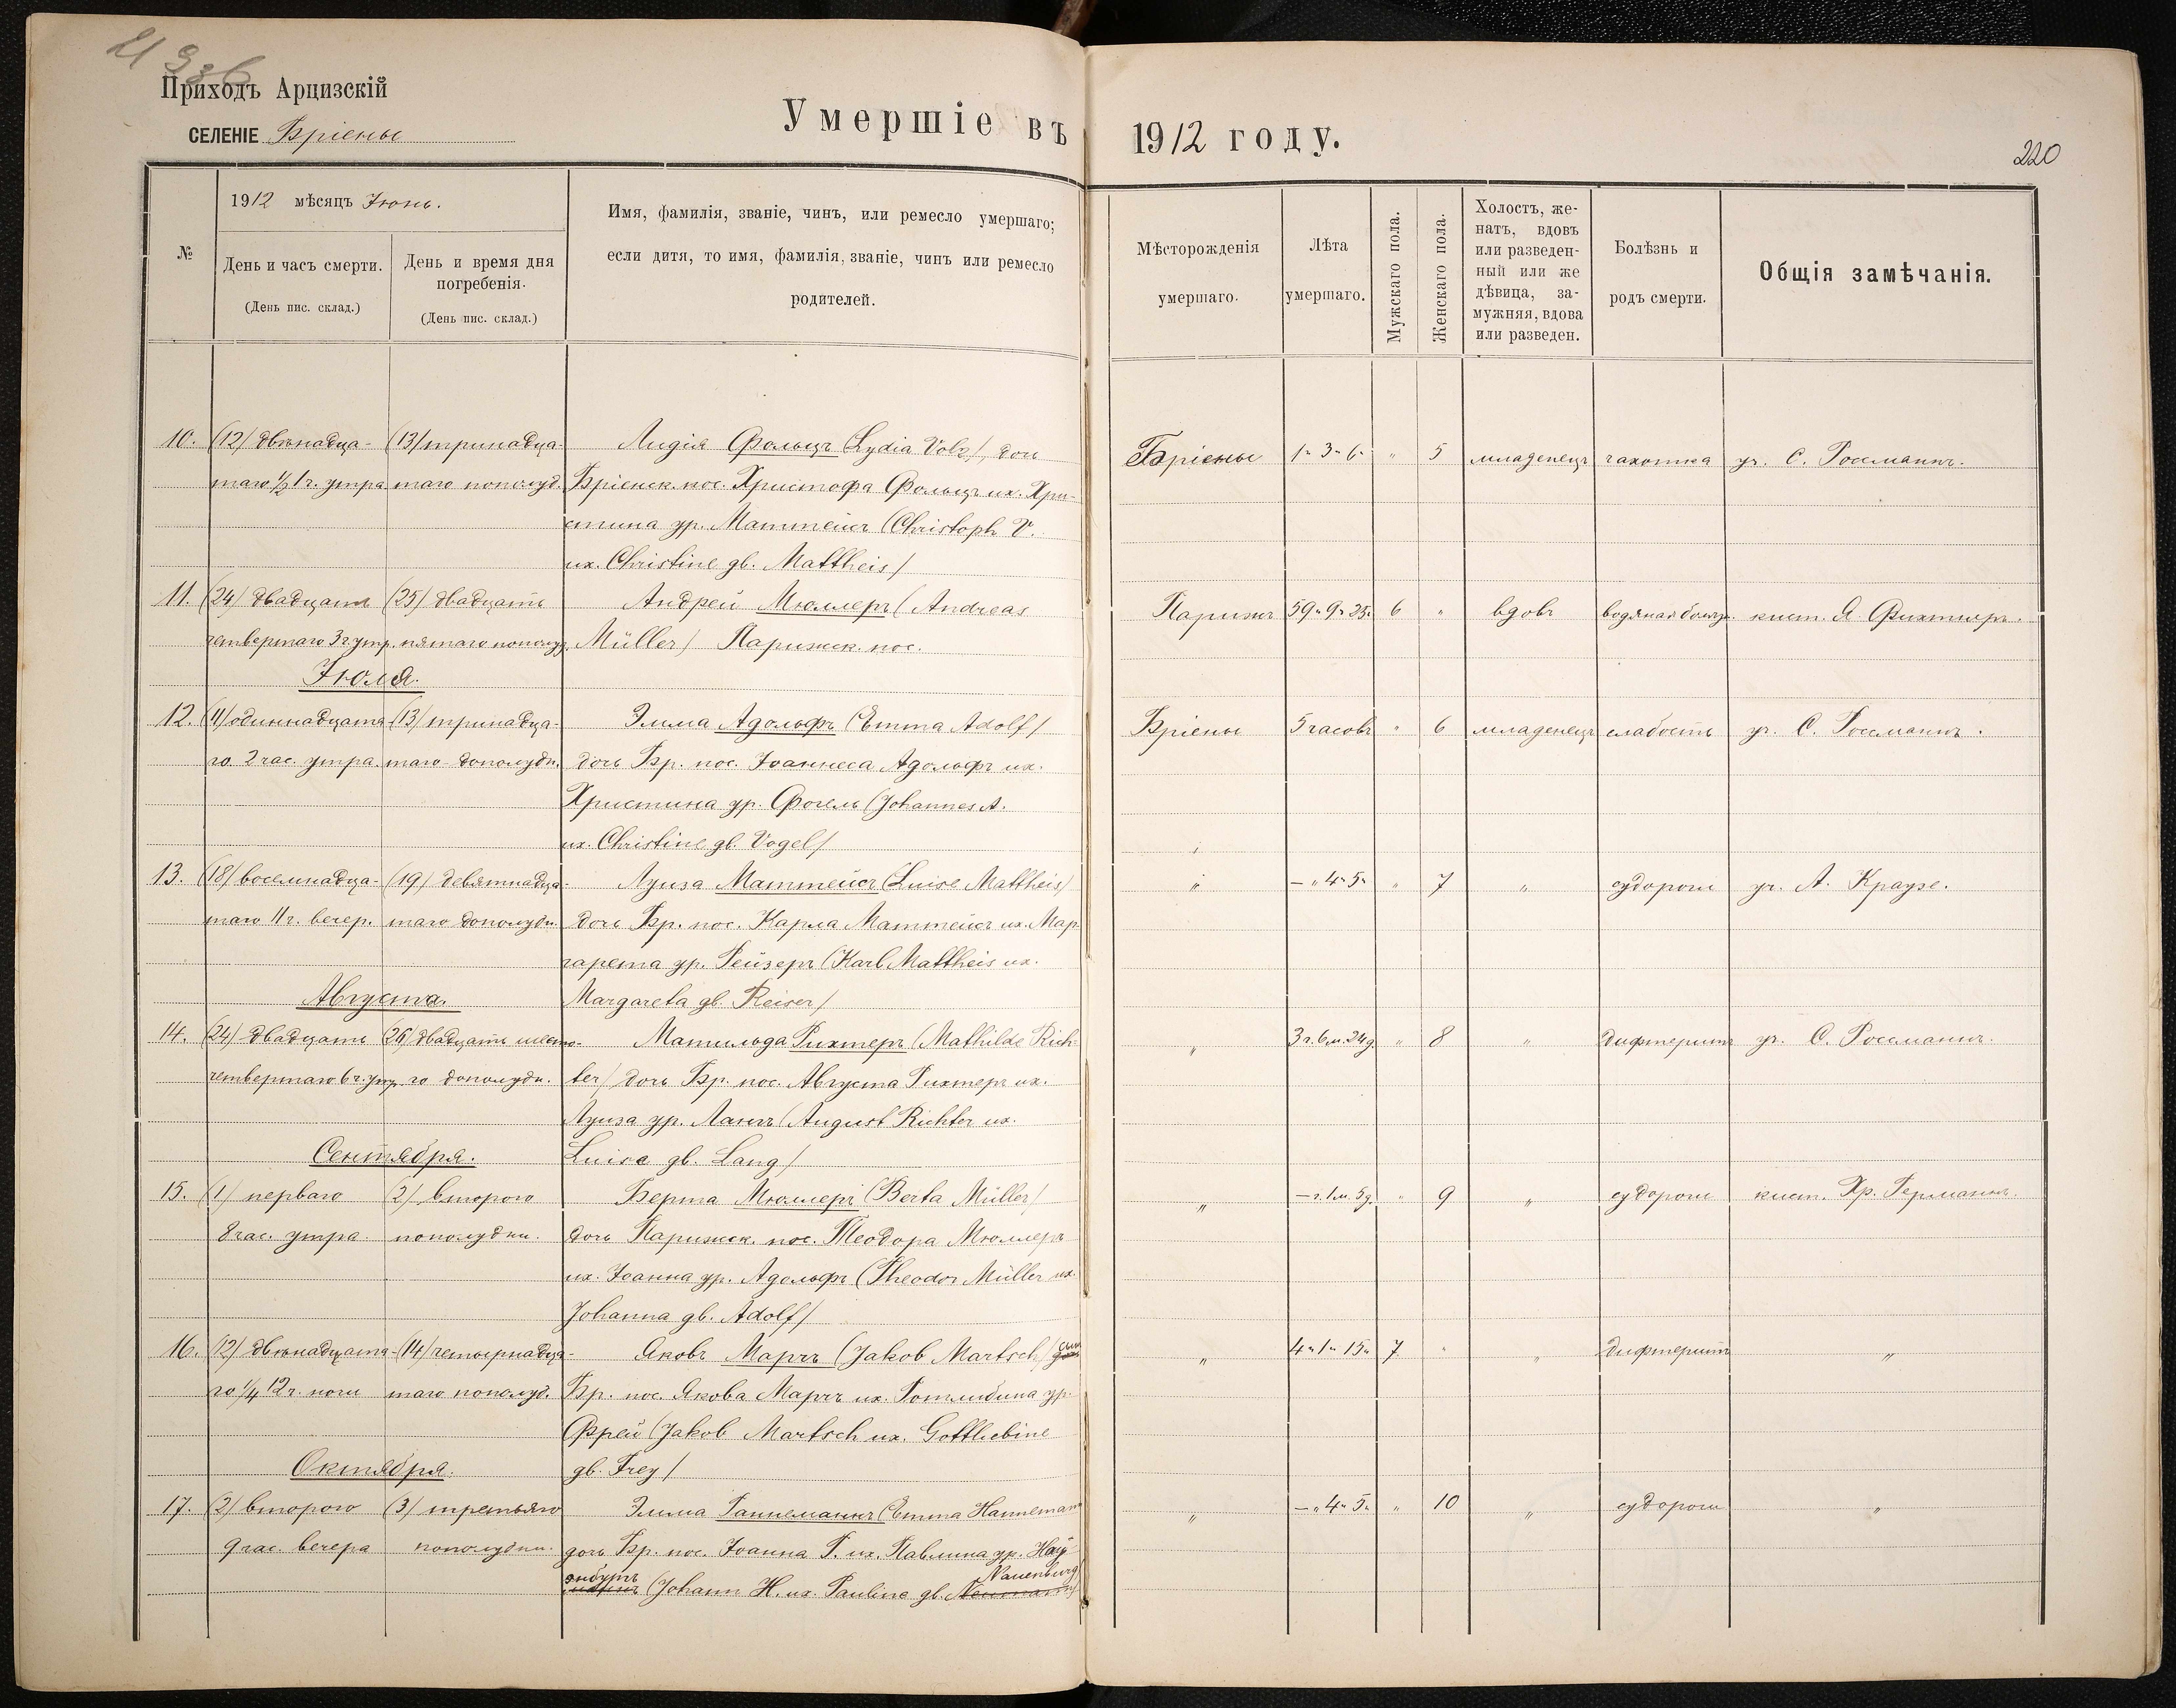 Приходъ Арцизскій
СЕЛЕНІЕ Бріены
Умершіе въ 1912 году.
220
№
1912 мѣсяцъ Іюнь.
День и часъ смерти.
(День пис. склад.)
День и время дня
погребенія.
(День пис. склад.)
Имя, фамилія, званіе, чинъ, или ремесло умершаго;
если дитя, то имя, фамилія, званіе, чинъ или ремесло
родителей.
Мѣсторожденія
умершаго.
Лѣта
умершаго.
Мужскаго пола.
Женскаго пола.
Холостъ, же-
натъ, вдовъ
или разведен-
ный или же
дѣвица, за-
мужняя, вдова
или разведен.
Болѣзнь и
родъ смерти.
Общія замѣчанія.
10. (12) двѣнадца- (13) тринадца- Лидія Фольцъ (Lydia Volz), дочь Бріены 1" 3" 6" " 5 младенецъ чахотка уч. С. Россманнъ.
таго ½ 1 ч. утра таго пополуд. Бріенск. пос. Христофа Фольцъ их. Хри-
стина ур. Маттейсъ (Christoph V.
их. Christine gb. Mattheis)
11. (24) двадцать (25) двадцать Андрей Мюллеръ (Andreas Парижъ 59" 9" 25" 6 " вдовъ водяная болѣзн. кист. Я. Фихтнеръ.
четвертаго 3 ч. утр. пятаго пополуд. Müller) Парижск. пос.
Іюля.
12. (11) одиннадцата- (13) тринадца- Эмма Адольфъ (Emma Adolf) Бріены 5 часовъ " 6 младенецъ слабость уч. С. Россманнъ.
го 2 час. утра. таго дополудн. дочь Бр. пос. Іоаннеса Адольфъ их.
Христина ур. Фогель (Johannes A.
их. Christine gb. Vogel)
13. (18) восемнадца- (19) девятнадца- Луиза Маттейсъ (Luise Mattheis) " — " 4" 5" " 7 " судороги уч. А. Краузе.
таго 11 ч. вечер. таго дополудн. дочь Бр. пос. Карла Маттейсъ их. Мар-
гарета ур. Рейзеръ (Karl Mattheis их.
Августа. Margareta gb. Reiser)
14. (24) двадцать (26) двадцать шесто- Матильда Рихтеръ (Mathilde Rich- " 3 г. 6 м. 24 д. " 8 " дифтеритъ уч. С. Россманнъ.
четвертаго 6 ч. утр. го дополудн. ter) дочь Бр. пос. Августа Рихтеръ их.
Луиза ур. Лангъ (August Richter их.
Сентября. Luise gb. Lang)
15. (1) перваго (2) второго Берта Мюллеръ (Berta Müller) " — г. 1 м. 5 д. " 9 " судороги кист. Хр. Германнъ.
8 час. утра. пополудни. дочь Парижск. пос. Теодора Мюллеръ
их. Іоанна ур. Адольфъ (Theodor Müller их.
Johanna gb. Adolf)
16. (12) двѣнадцата- (14) четырнадца- Яковъ Марчъ (Jakob Martsch) сынъ " 4" 1" 15" 7 " " дифтеритъ "
го ¼ 12 ч. ночи таго пополуд. Бр. пос. Якова Марчъ их. Готлибина ур.
Фрей (Jakob Martsch их. Gottliebine
Октября. gb. Frey)
17. (2) второго (3) третьяго Эмма Ганнеманнъ (Emma Hannemann " — " 4" 5" " 10 " судороги "
9 час. вечера пополудни. дочь Бр. пос. Іоанна Г. их. Павлина ур. Нау-
энбургъ (Johann H. их. Paulina gb. Neumann Nauenburg)